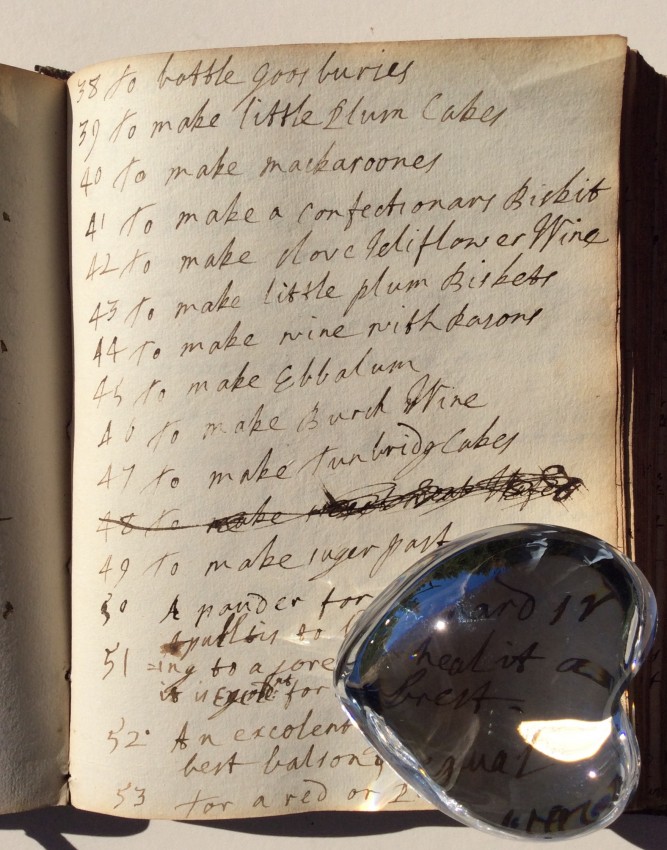 38 to bottle goosburies
39 to make little Plum Cakes
40 to make mackaroones
41 to make a confectionars Biskit
42 to make Clove Jeliflower Wine
43 to make little plum Biskets
44 to make wine with Rasons
45 to make Ebbalum
46 to make Burch Wine
47 to make Tunbridg Cakes
48 to make
49 to make suger past
50 A pouder for
51 Apultis to
=ing to a sore heal it a
it is for brest
52 An excolent
best balsom equal
53 for a red or